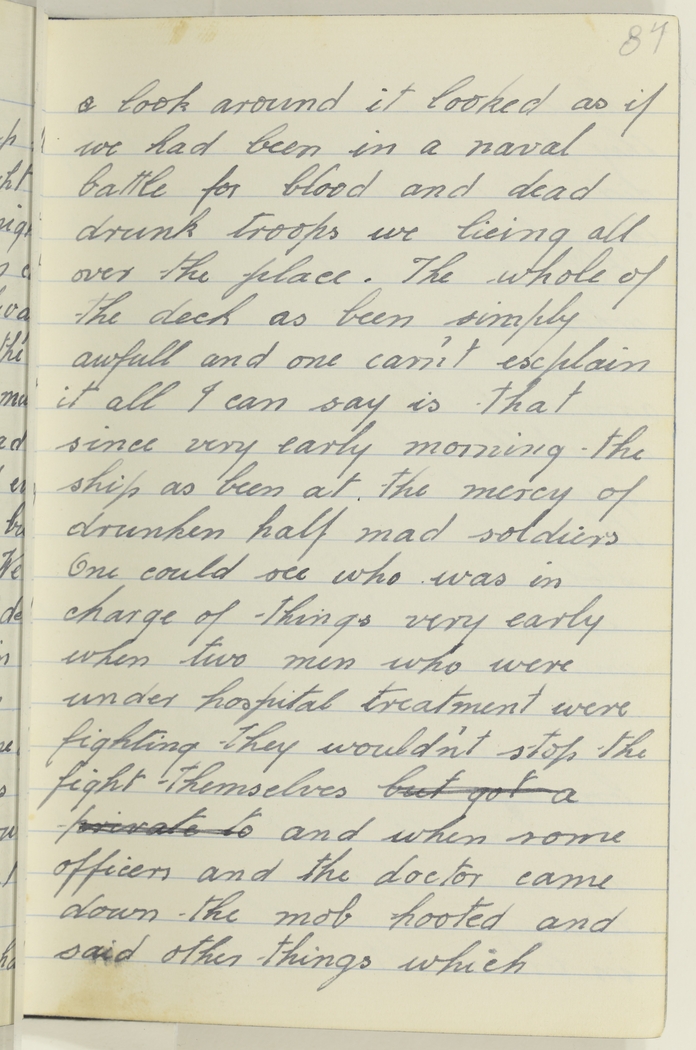 87
a look around it looked as if
we had been in a naval
battle for blood and dead
drunk troops we lieing all
over the place. The whole of
the deck as been simply
awfull and one carn't escplain
it all I can say is that
since very early morning the
ship as been at the mercy of
drunken half mad soldiers
One could see who was in
charge of things very early
when two men who were
under hospital treatment were
fighting they wouldn't stop the
fight themselves but got a
private to and when some
officers and the doctor came
down the mob hooted and
said other things which